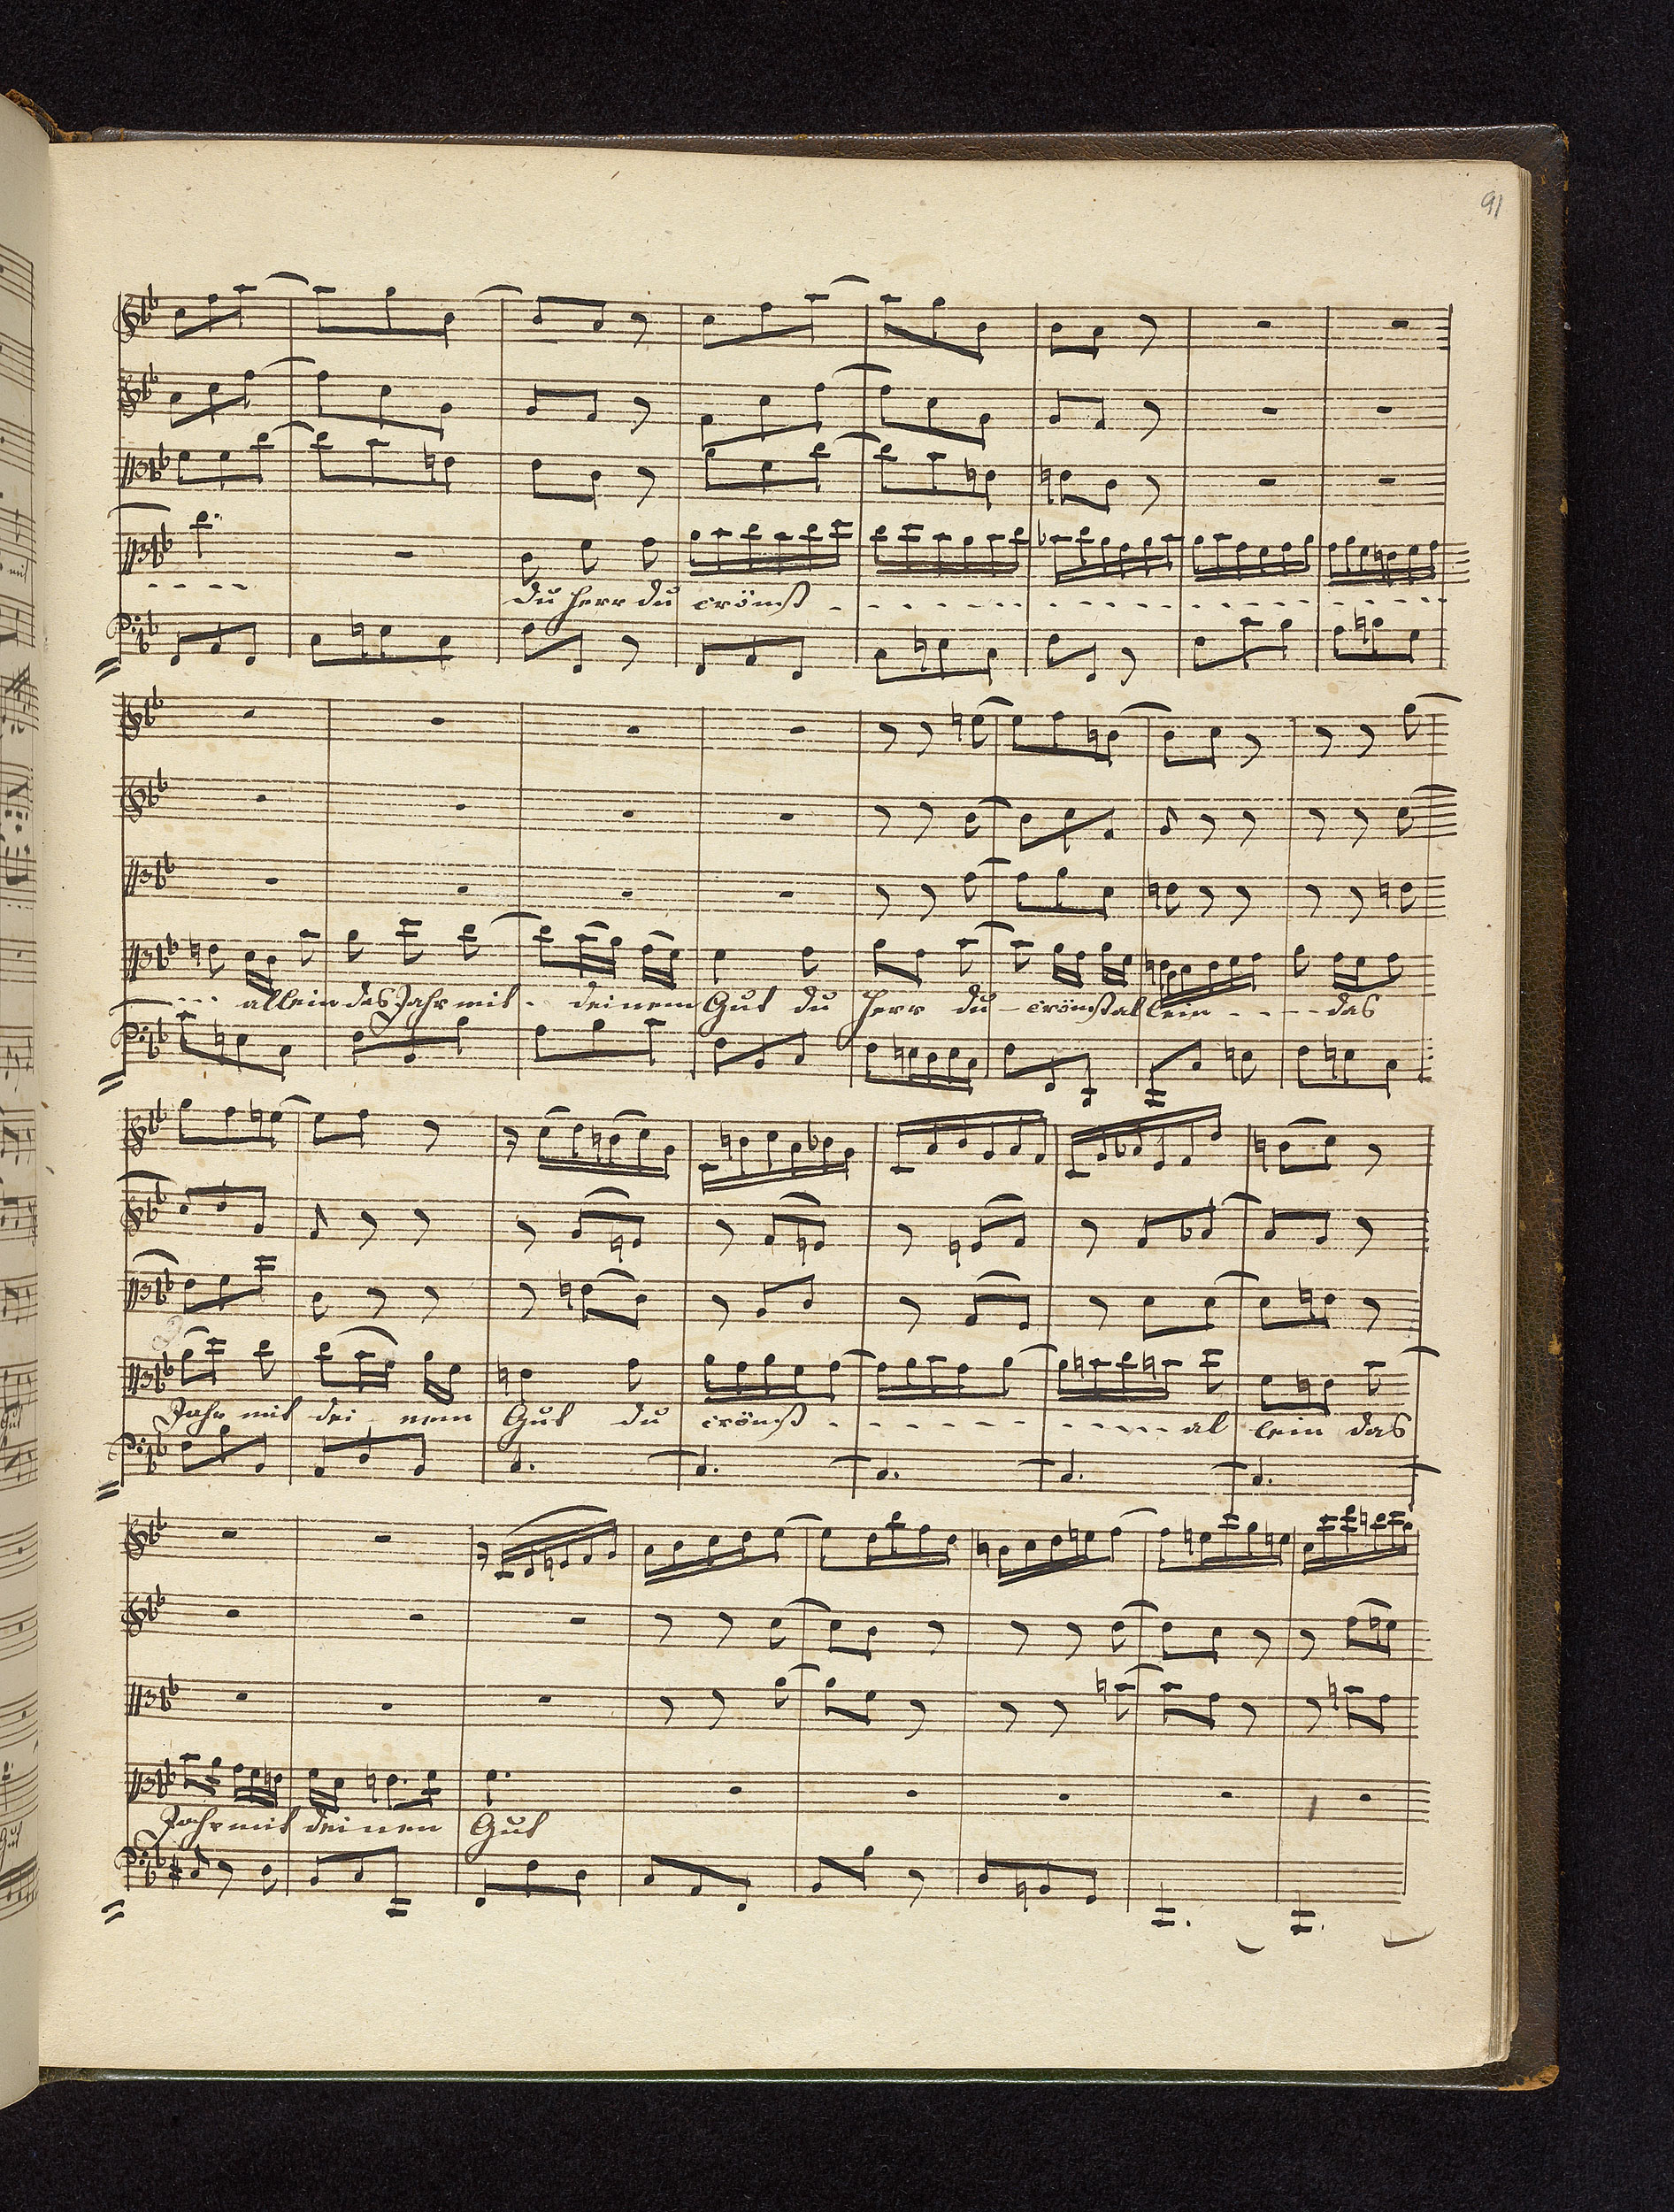 91
du Herr du crönst
allein das Jahr mit deinem Gut du Herr du crönst allein das
Jahr mit deinem Gut du crönst allein das
Jahr mit deinen Gut